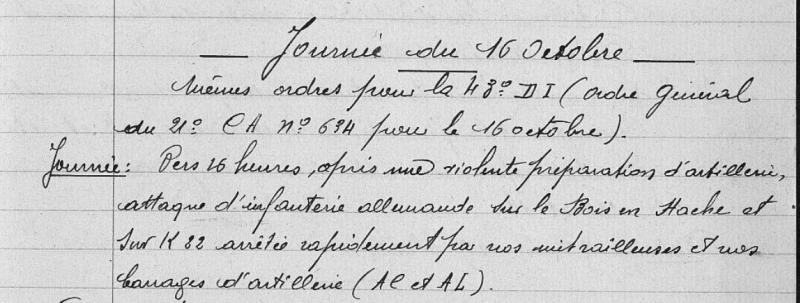 — Journée du 16 Octobre —
Mêmes ordres pour la 43e DI (ordre général
du 21e CA no 634 pour le 16 octobre).
Journée: Vers 16 heures, après une violente préparation d'artillerie,
attaque d'infanterie allemande sur le Bois en Hache et
sur K 82 arrêtée rapidement par nos mitrailleuses et nos
barrages d'artillerie (AC et AL).